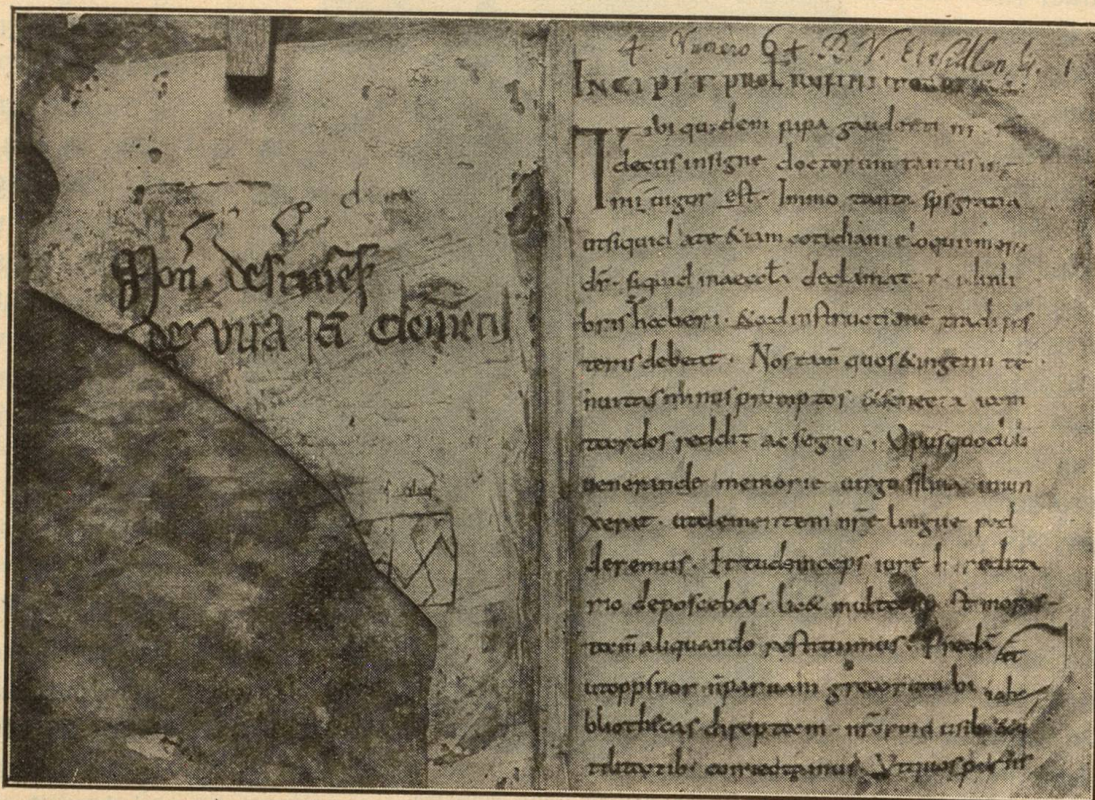 d
Mon.
De vita sci Clementis
4. Numero 64
INCIPIT PROL RUFINI
Tibi quidem supa gaudenti
decus insigne doctorum tantus
mi uigor est. Immo tanta sps gratia
ut siquid a te &iam cotidiani eloquii
dr. siquid in aeccla declimat li
bris haberi. & ad instructione tradi pos
teris debeat. Nos tam quos & ingenii te
nuitas minus promptos & senecta iam
tardos reddit ac segnes. Opus quod oli
uenerande memorie uirgo siluia iniun
xerat. ut clementem nre lingue red
deremus. Et tu deinceps iure heredita
rio deposcebas. lic& multas mora
tam aliquando restituimus. Preda
ut oppinor n paruam grecorum bi
bliothecas direptam. nrorum usib. & u
tilitatib. conuectamus. Ut quos